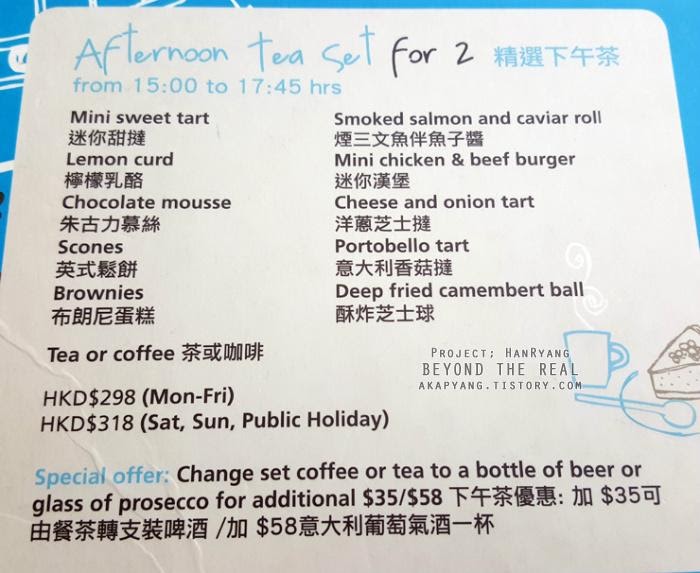 Afternoon tea set for 2 精選下午茶
from 15:00 to 17:45 hrs
Mini sweet tart
迷你甜撻
Lemon curd
檸檬乳酪
Chocolate mousse
朱古力慕絲
Scones
英式鬆餅
Brownies
布朗尼蛋糕
Smoked salmon and caviar roll
煙三文魚伴魚子醬
Mini chicken & beef burger
迷你漢堡
Cheese and onion tart
洋蔥芝士撻
Portobello tart
意大利香菇撻
Deep fried camembert ball
酥炸芝士球
Tea or coffee 茶或咖啡
HKD$298 (Mon-Fri)
HKD$318 (Sat, Sun, Public Holiday)
Special offer: Change set coffee or tea to a bottle of beer or
glass of prosecco for additional $35/$58 下午茶優惠: 加 $35可
由餐茶轉支裝啤酒 /加 $58意大利葡萄氣酒一杯
Project; HanRyang
BEYOND THE REAL
AKAPYANG.TISTORY.COM